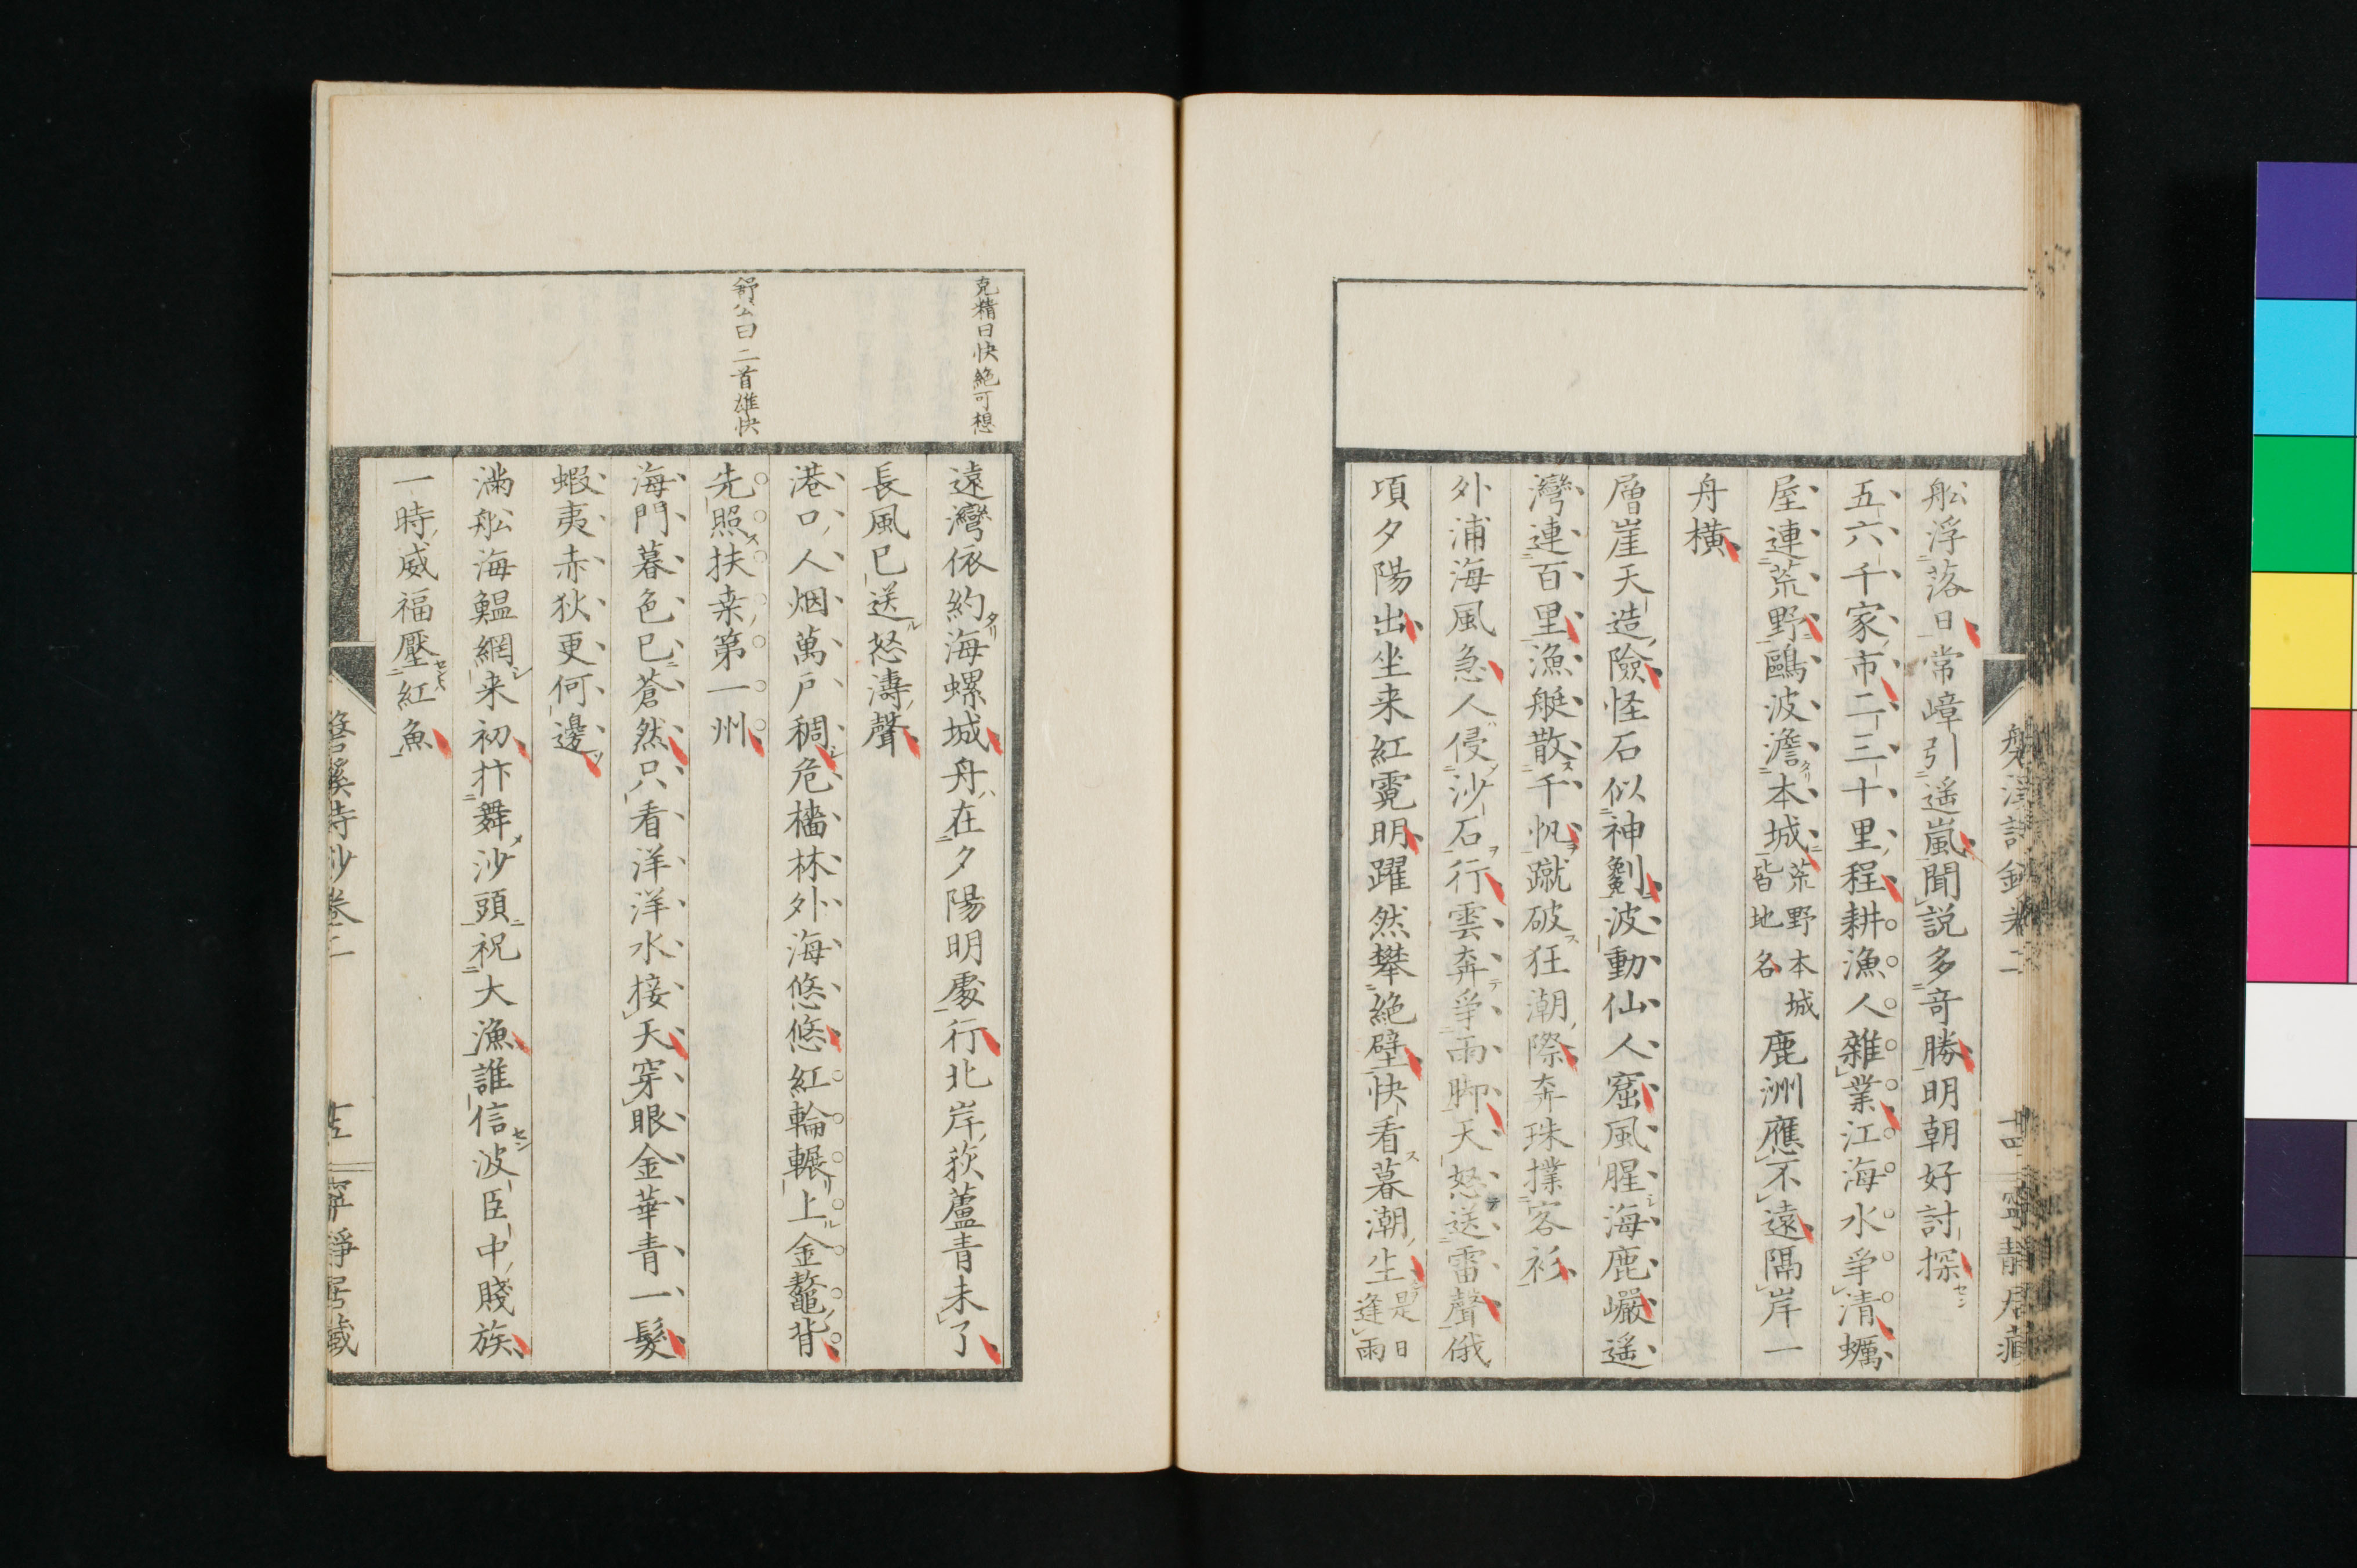 舩浮落日常嶂引遥嵐聞説多竒勝明朝好討探
五六千家市二三十里程耕漁人雜業江海水爭清蠣
屋連荒野鷗波澹本城荒野本城皆地名鹿洲應不遠隔岸一
舟横
層崖天造險怪石似神劖波動仙人窟風腥海鹿巖遥
灣連百里漁艇散千帆蹴破狂潮際奔珠撲客衫
外浦海風急人侵沙石行雲奔爭雨脚天怒送雷聲俄
頃夕陽出坐来紅霓明躍然攀絶壁快看暮潮生是日逢雨
克精曰快絶可想
遠灣依約海螺城舟在夕陽明處行北岸荻蘆青未了
長風已送怒濤聲
港口人烟萬戸稠危檣林外海悠悠紅輪輾上金鼇背
舒公曰二首雄快
先照扶桒第一州
海門暮色已蒼然只看洋洋水接天穿眼金華青一髮
蝦夷赤狄更何邊
滿舩海鰮網来初抃舞沙頭祝大漁誰信波臣中賤族
一時威福壓紅魚